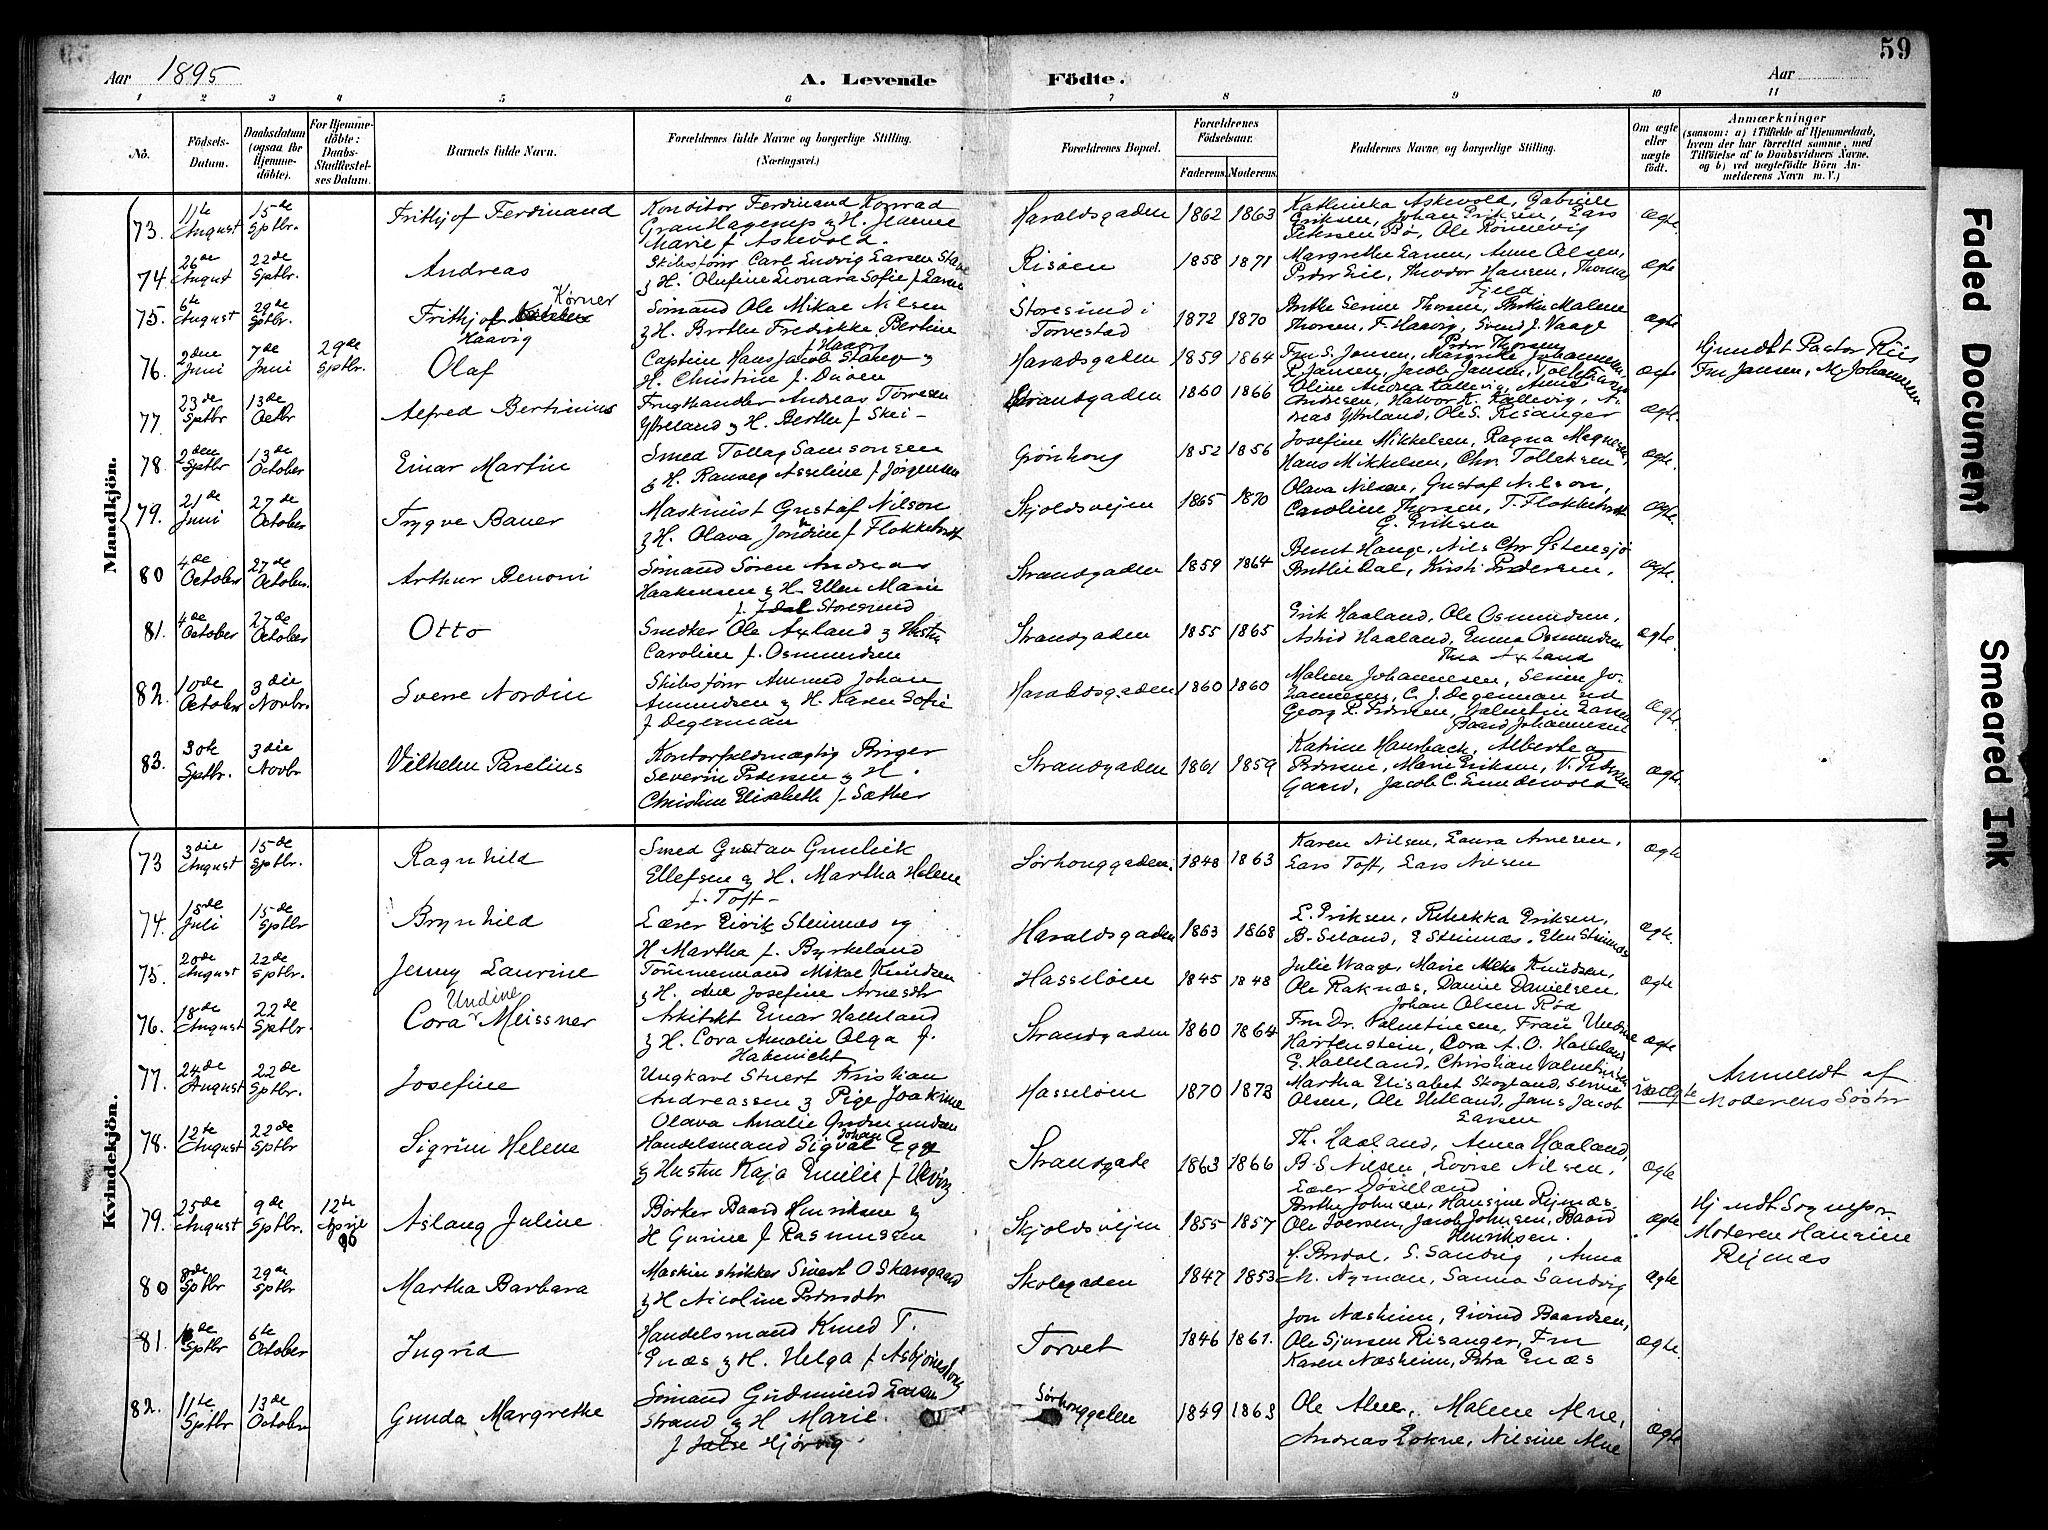 59
Aar 1895
A. Levende
Födte.
Aar
1 2 3 4 5 6 7 8 9 10 11
No.
Födsels-
Datum.
Daabsdatum
(ogsaa for
Hjemme-
döbte).
For Hjemme-
döbte:
Daabs-
Stadfestel-
ses Datum.
Barnets fulde Navn.
Forældrenes fulde Navne og borgerlige Stilling.
(Næringsvei.)
Forældrenes Bopæl.
Forældrenes
Födselsaar.
Faderens. Moderens.
Faddernes Navne og borgerlige Stilling.
Om ægte
eller
uægte
födt.
Anmærkninger
(saasom: a) i Tilfælde af Hjemmedaab,
hvem der har forrettet samme, med
Tilföielse af to Daabsvidners Navne.
og b) ved uægtefödte Börn An-
melderens Navn m. V.)
Mandkjön.
73. 11te August 15de Sptbr. Frithjof Ferdinand
Konditor Ferdinand Konrad
Marie f. Askevold.
Haraldsgaden 1862 1863
Eriksen, Johan Eriksen, Lars
Petersen Bö, Ole Rönnevig
ægte
74. 26de August 22de Sptbr. Andreas
Skibsförer Carl Ludvig Larsen
& H. Olufine Leonara Sofie f. Larsen
Risöen 1858 1871
Margrethe Larsen, Anne Olsen,
Peder Lie, Theodor Hansen, Thomas
Fjeld
ægte
75. 6te August 29de Sptbr. Frithjof Körner
Haavig
Sömand Ole Mikae Nilsen
& H. Berthe Fredrikke Bertine
f. Haavig
Storesund i
Torvestad
1872 1870
Thorsen, F. Haavig, Svend J. Vaage
Peder Thorsen
ægte
76. 2den Juni 7de Juni 29de Sptbr. Olaf
Captein Hans Jacob Stange &
H. Christine f. Duöen
Haraldsgaden 1859 1864
Fru S. Jansen, Margrethe Johannesen
ægte
Hjmdbt Pastor Riis
Fru Jansen, M. Johannesen
77. 23de Sptbr 13de Octbr Alfred Bertinius
Frugthandler Andreas Törresen
Yttreland & H. Berthe f. Skei -
Strandgaden 1860 1866
Andresen, Halvor K. Kallevig, An-
dreas Yttreland, Ole S. Risanger
ægte
78. 2den Sptbr 13de October Einar Martin
Smed Tollag Samsonsen
& H. Ranveg Asseline f. Jörgensen
Grönhoug 1852 1856
Josefine Mikkelsen, Ragna Magnesen,
Hans Mikkelsen, Chr. Tollaksen
ægte
79. 21de Juni 27de October Trygve Bauer
Maskinist Gustaf Nilson
& H. Olava Jondine f. Flokketvedt
Skjoldsvejen 1865 1870
Olava Nilson, Gustaf Nilson,
Caroline Thorsen, T. Flokketvedt
G. Eriksen
ægte
80 4de October 27de October. Arthur Benoni
Sömand Sören Andreas
Haakensen & H. Ellen Marie
f. Storesund
Strandgaden 1859 1864
Bernt Hauge, Nils Chr Östensjö
Berthe Dal, Kirsti Pedersen,
ægte
81. 4de October 27de October Otto
Snedker Ole Axland & Hustru
Caroline f. Osmundsen
Strandgaden 1855 1865
Erik Haaland, Ole Osmundsen,
Astrid Haaland, Emma Osmundsen
Thea Axland
ægte
82. 10de October 3die Novbr. Sverre Nordin
Skibsförer Amund Johan
Amundsen & H. Karen Sofie
f. Degerman
Haraldsgaden 1860 1860
Malene Johannesen, Serine Jo-
hannesen, C. J. Degerman ved
Georg P. Pedersen, Valentin Larsen
Baard Johannesen
ægte
83. 30te Sptbr. 3die Novbr Vilhelm Parelius
Kontorfuldmægtig Birger
Severin Pedersen & H.
Christine Elisabeth f. Sæther
Strandgaden 1861 1859
Katrine Hansbach, Alberte
Pedersen, Marie Eriksen, V. Pedersen
Gaard, Jacob C. Lundevold
ægte
Kvindekjön.
73 3die August 15de Sptbr. Ragnhild
Smed Gustav Gunleik
Ellefsen & H. Martha Helene
f. Toft -
Sörhouggaden. 1848 1863
Karen Nilsen, Laura Arnesen,
Lars Toft, Lars Nilsen
ægte
74. 18de Juli 15de Sptbr Brynhild
Lærer Eirik Steinnæs og
H Martha f. Byrkeland
Haraldsgaden 1863 1868
L. Eriksen, Rebekka Eriksen,
B. Seland, E Steinnæs, Elen Steinnæs
ægte.
75. 20de August 22de Sptbr. Jenny Laurine
Tömmermand Mikae Knudsen
& H. Ane Josefine Arnesdtr
Hasselöen 1845 1848
Julie Waage, Marie Knudsen,
Ole Raknæs, Danine Danielsen,
Johan Olsen Röd
ægte
76. 18de August 22de Sptbr. Cora Undine Meissner
Arkitekt Einar Halleland
& H. Cora Amalie Olga f.
Habenicht
Strandgaden 1860 1864
Fru Dr. Valentinsen, Frau Undine
Hartenstein, Cora A. O. Halleland
E. Halleland, Christian Valentinsen
ægte
77. 24de August 22de Sptbr. Josefine
Ungkarl Stuert Kristian
Andreassen & Pige Joakime
Olava Amalie Gudmundsen
Hasselöen 1870 1873
Martha Elisabet Skogland, Serine
Olsen, Ole Hetland, Jans Jacob
Larsen
uægte
Anmeldt af
Moderens Söster
78. 12te August 22de Sptbr Sigrun Helene
Handelsmand Sigval Johan Egge
& Hustru Kaja Emilie f. Ulving
Strandgade 1863 1866
Th. Haaland, Anna Haaland,
B. S. Nilsen, Lovise Nilsen,
ægte
79. 25de August 9de Sptbr. 12te April 96 Aslaug Juline
Börker Baard Henriksen &
H Gurine f Rasmussen
Skjoldsvejen 1855 1857
Berthe Johnsen, Hansine Rejmæs
Ole Iversen, Jacob Johnsen, Baard
Henriksen.
ægte
Hjmdbt Sognepr
Moderen Hansine
Rejmæs
80 8de Sptbr 29de Sptbr Martha Barbara
Maskinstrikker Sivert O Skarsgaard
& H Nicoline Pedersdtr
Skolegaden 1847 1853
S. Sandvig, Anna
M. Nyman, Sanna Sandvig
ægte
81. Sptbr 6te October Ingrid
Handelsmand Knud T.
Enæs & H. Helga f. Asbjörnsborg
Torvet 1846 1861.
Jon Næsheim, Eivind Baardsen,
Ole Sjursen Risanger, Fru
Karen Næsheim, Petra Enæs
ægte.
82. 11te Sptbr 13de October Gunda Margrethe
Sömand Gudmund Larsen
Strand & H Marie.
f Hjörvig
Sörhouggaden 1849 1863
Ole Alne, Malene Alne,
Andreas Lokne, Nilsine Alne
ægte
Faded Document
Smeared Ink